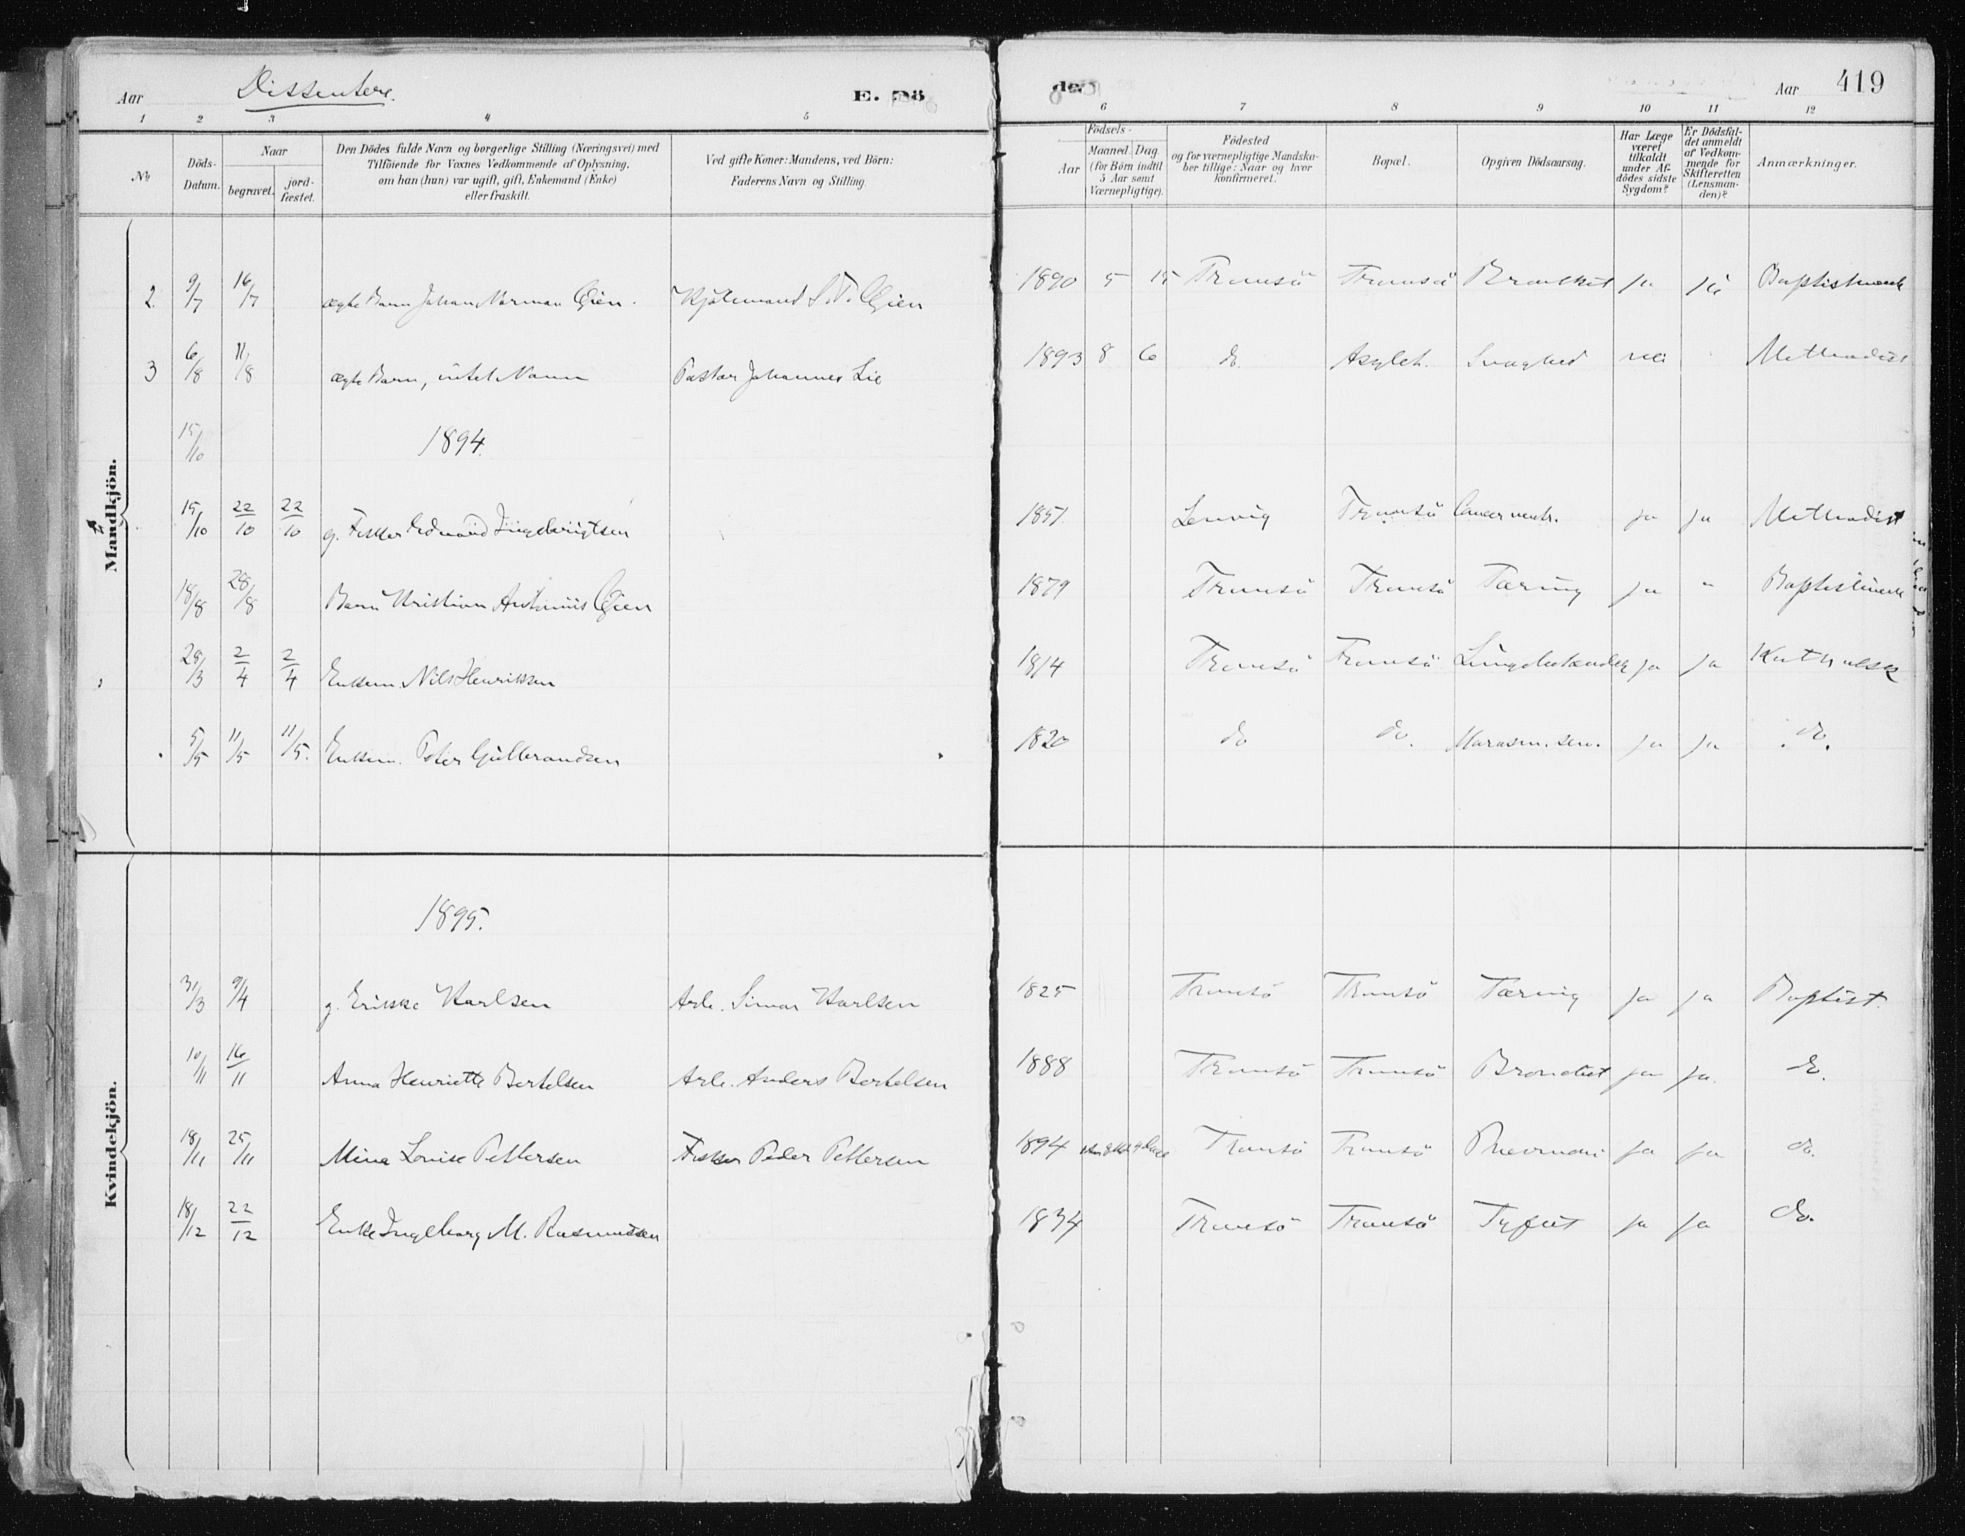 Aar Dissentere. E. Dö
de. Aar 419
1 2 3 4 5 6 7 8 9 10 11 12
No
Döds-Datum.
Naar
begravet.
jord-fæstet.
Den Dödes fulde Navn og borgerlige Stilling (Næringsvei) med
Tilföiende for Voxnes Vedkommende af Oplysning,
om han (hun) var ugift, gift, Enkemand (Enke)
eller fraskilt.
Ved gifte Koner: Mandens, ved Börn:
Faderens Navn og Stilling.
Födsels-
Aar
Maaned. Dag.
(for Börn indtil
5 Aar samt
Værnepligtige).
Födested
og for værnepligtige Mandska-
ber tillige: Naar og hvor
konfirmeret.
Bopæl.
Opgiven Dödsaarsag.
Har Læge
været
tilkaldt
under Af-
dödes sidste
Sygdom?
Er Dödsfal-
det anmeldt
af Vedkom-
mende for
Skifteretten
(Lensman-
den)?
Anmærkninger.
Mandkjön.
2. 9/7 16/7 ægte Barn Johan Norman Gjien. 1890 5 15 Tromsö Tromsö ja ja
3 6/8 11/8 ægte Barn, intet Navn Pastor Johannes Lie 1893 8 6 do. Asyleh. Svaghed nei Methodist
15/10 1894.
15/10 22/10 22/10 g. Fisker Edvard Ingebrigtsen 1851 Lenvig Tromsö Cancer ventr. ja ja Methodist
18/8 28/8 Barn Kristian Antonius Gjien 1879 Tromsö Tromsö Tæring ja "
28/3 2/4 2/4 Enkem. Nils Henriksen 1814 Tromsö Tromsö ja ja Katholsk
5/5 11/5 11/5. Enkem. Peter Gulbrandsen 1820 do do. Marasm. sen. ja ja do.
Kvindekjön.
1895.
31/3 9/4 g. Erikka Karlsen Arb. Simon Karlsen 1825 Tromsö Tromsö Tæring ja ja Baptist.
10/11 16/11 Anna Henriette Bertelsen Arb. Anders Bertelsen 1888 Tromsö Tromsö ja ja. do.
18/11 25/11 Mina Lovise Pettersen Fisker Peder Pettersen 1894 Tromsö Tromsö ja ja do.
18/12 22/12 Enke Ingeborg M. Rasmussen 1834 Tromsö Tromsö ja ja do.